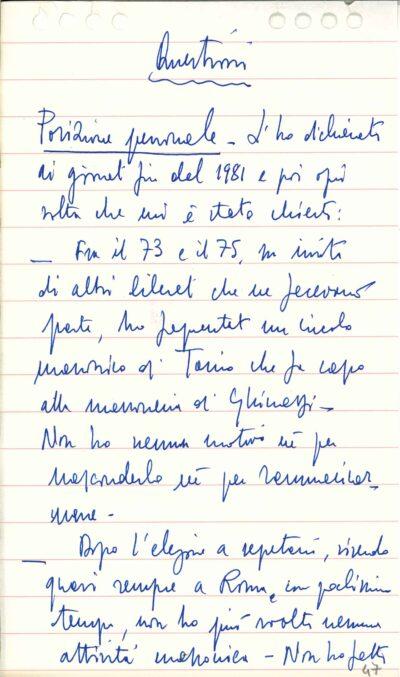 Questioni
Posizione personale - L'ho dichiarata
ai giornali fin dal 1981 e poi ogni
volta che mi è stato chiesto:
— Fra il 73 e il 75, su invito
di altri liberali che ne facevano
parte, ho frequentato un circolo
massonico di Torino che fa capo
alla massoneria di Ghinazzi -
Non ho nessun motivo né per
nasconderlo né per rammaricar-
mene -
— Dopo l'elezione a segretario, vivendo
quasi sempre a Roma, e con pochissimo
tempo, non ho più svolto nessuna
attività massonica - Non ho fatto
47